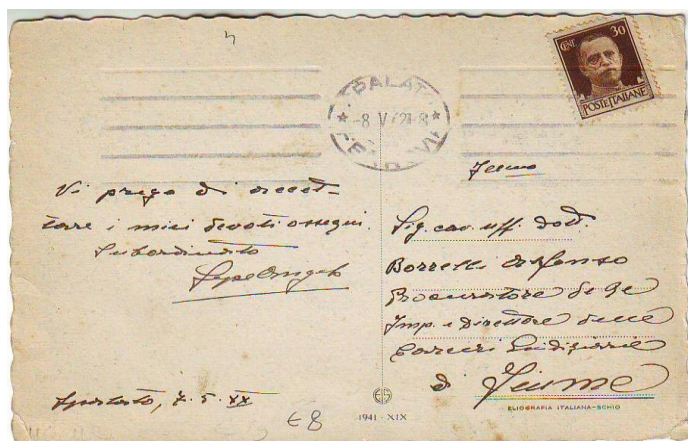 CENT. 30
POSTE ITALIANE
-8 V 42 1-8
Fiume
Vi prego di accet-
tare i miei devoti ossequi.
Subordinato
Sig. cav. uff. dott.
Borrelli Alfonso
Procuratore de Re
Imp. e Direttore delle
Carceri Giudiziarie
di Fiume
Spalato, 7.5.XX
€8
1941 - XIX
ELIOGRAFIA ITALIANA-SCHIO